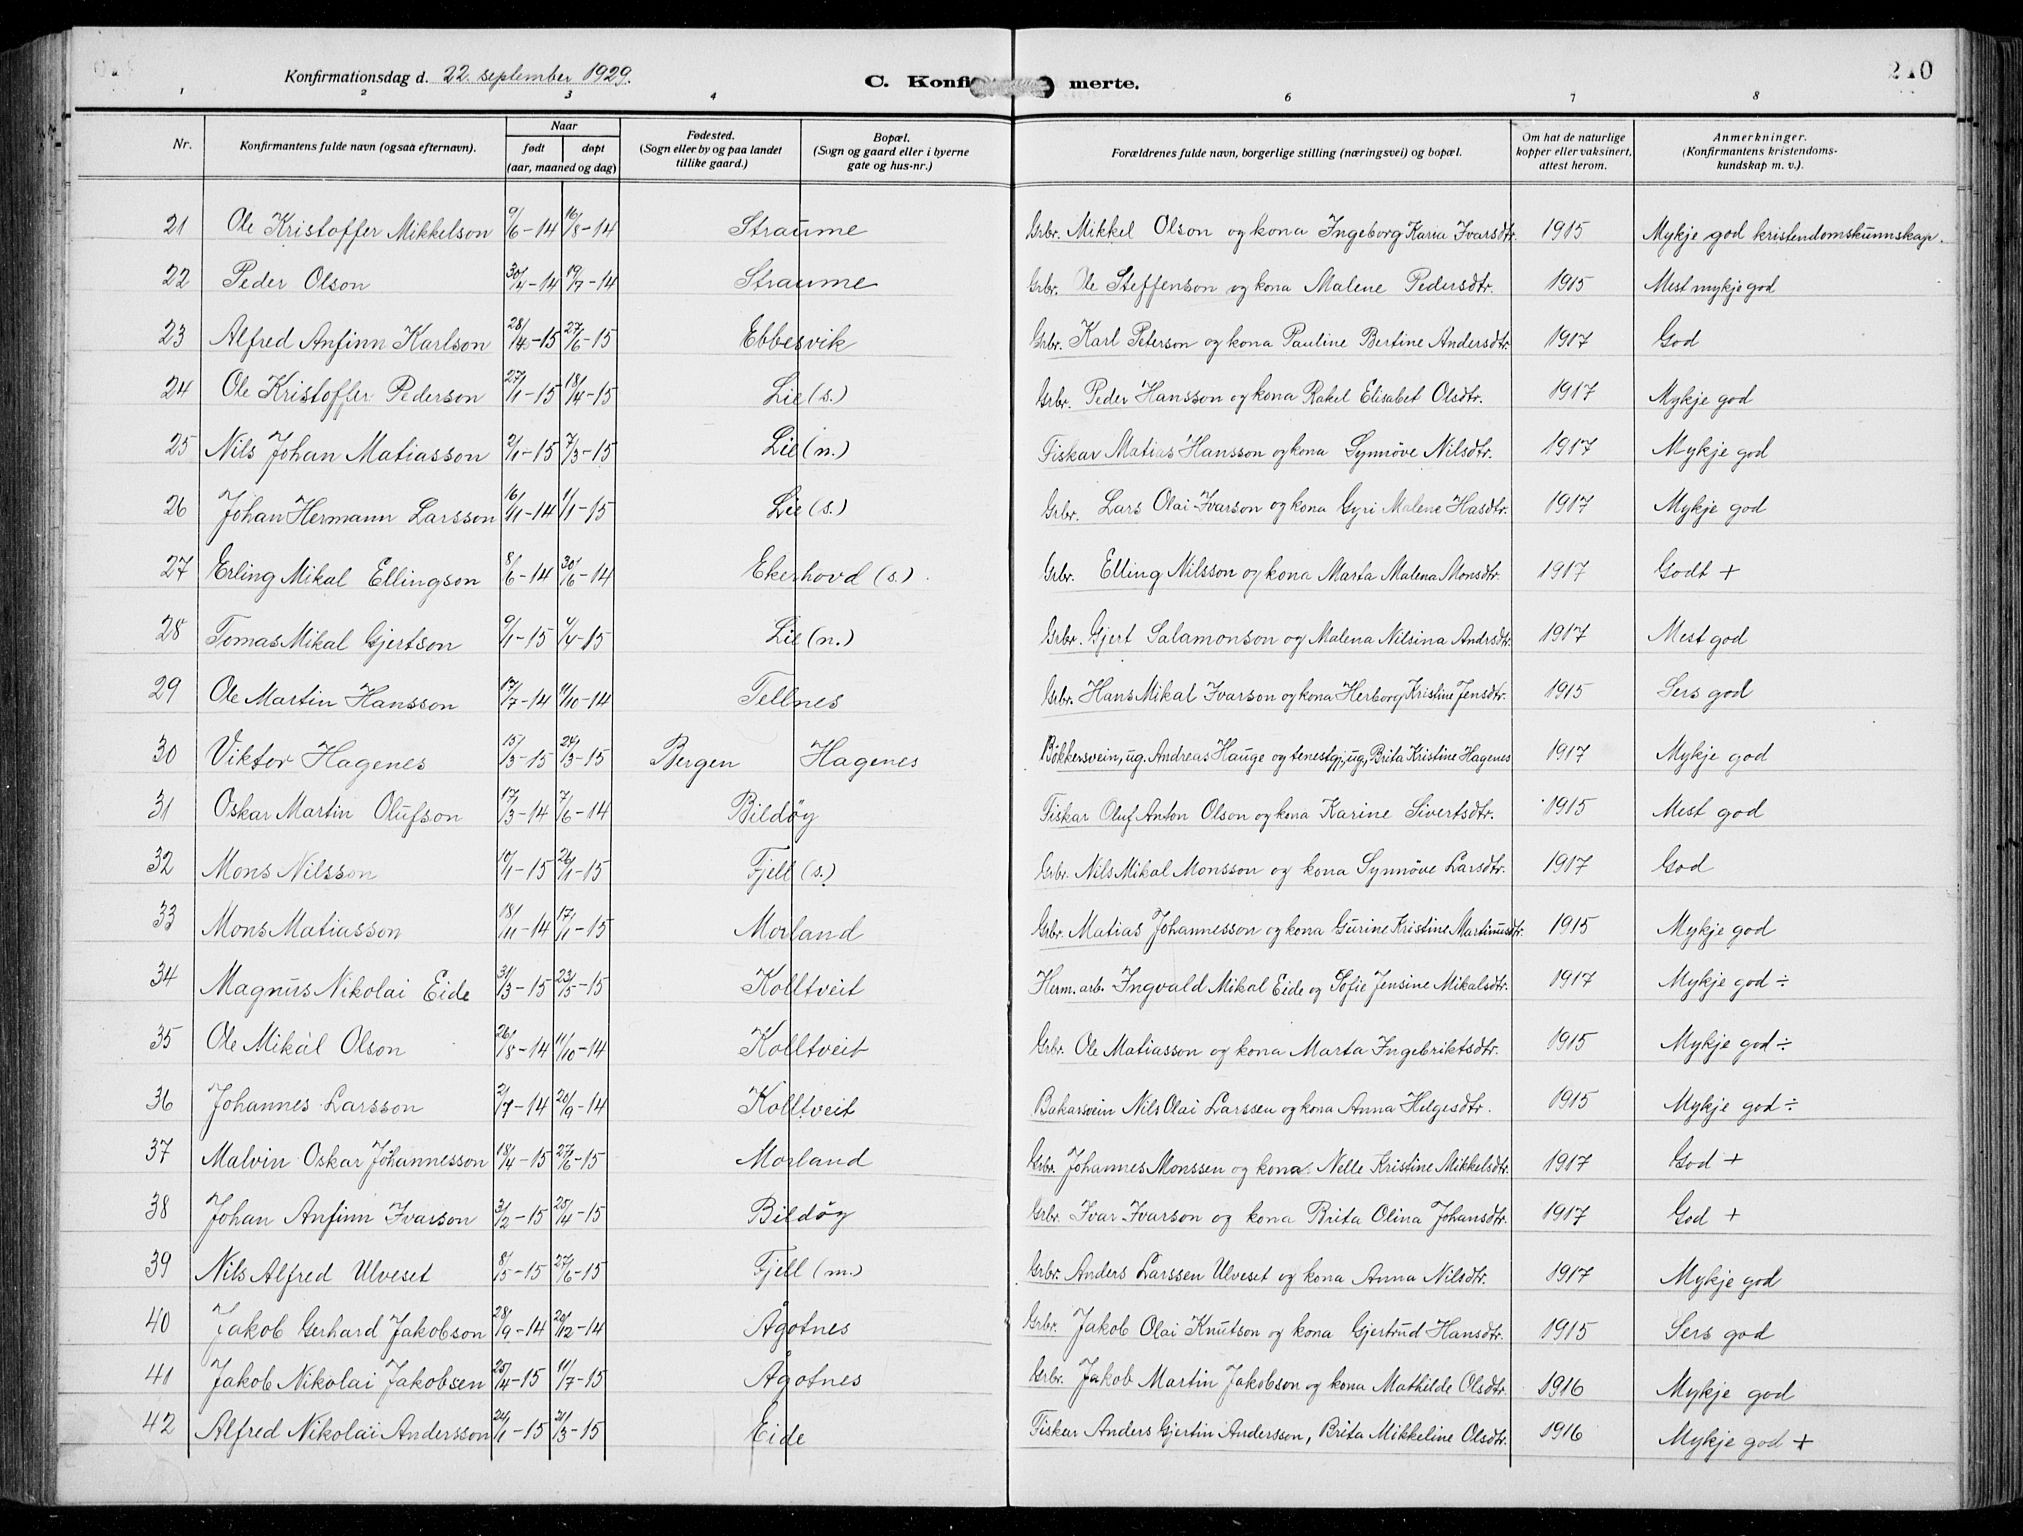 Konfirmationsdag d. 22. september 1929.
C. Konfi merte.
210
1 2 3 4 5 6 7 8
Nr.
Konfirmantens fulde navn (ogsaa efternavn).
Naar
født døpt
(aar, maaned og dag)
Fødested.
(Sogn eller by og paa landet
tillike gaard.)
Bopæl.
(Sogn og gaard eller i byerne
gate og hus-nr.)
Forældrenes fulde navn, borgerlige stilling (næringsvei) og bopæl.
Om hat de naturlige
kopper eller vaksinert,
attest herom.
Anmerkninger.
(Konfirmantens kristendoms-
kundskap m. v.)
21 Ole Kristoffer Mikkelson 9/6-14 16/8-14 Straume Grbr. Mikkel Olson og kona Ingeborg Karia Ivarsdtr. 1915 Mykje god kristendomskunnskap.
22 Peder Olson 30/4-14 19/7-14 Straume Grbr. Ole Steffenson og kona Malene Pedersdtr. 1915 Mest mykje god
23 Alfred Anfinn Karlson 28/4-15 27/6-15 Ebbesvik Grbr. Karl Peterson og kona Pauline Bertine Andersdtr. 1917 God
24 Ole Kristoffer Pederson 27/1-15 18/4-15 Lie (s.) Grbr. Peder Hansson og kona Rakel Elisabet Olsdtr. 1917 Mykje god
25 Nils Johan Matiasson 2/1-15 7/3-15 Lie (n.) Fiskar Matias Hansson og kona Synnöve Nilsdtr. 1917 Mykje god
26 Johan Hermann Larsson 16/11-14 1/1-15 Lie (s.) Grbr. Lars Olai Ivarson og kona Gyri Malene Hasdtr. 1917 Mykje god
27 Erling Mikal Ellingson 8/6-14 30/6-14 Ekerhovd (s.) Grbr. Elling Nilsson og kona Marta Malena Monsdtr. 1917 Godt +
28 Tomas Mikal Gjertson 9/1-15 4/4-15 Lie (n.) Grbr. Gjert Salamonson og Malena Nilsina Andrsdtr. 1917 Mest god
29 Ole Martin Hansson 17/7-14 11/10-14 Tellnes Grbr. Hans Mikal Ivarson og kona Herborg Kristine Jensdtr. 1915 Sers god
30 Viktor Hagenes 15/3-15 24/3-15 Bergen Hagenes Bökkersvein, ug. Andreas Hauge og tenestgj, ug, Brita Kristine Hagenes 1917 Mykje god
31 Oskar Martin Olufson 17/3-14 7/6-14 Bildöy Fiskar Oluf Anton Olson og kona Karine Sivertsdtr. 1915 Mest god
32 Mons Nilsson 10/1-15 26/1-15 Fjell (s.) Grbr. Nils Mikal Monsson og kona Synnöve Larsdtr. 1917 God
33 Mons Matiasson 18/11-14 17/1-15 Morland Grbr. Matias Johannesson og kona Gurine Kristine Martinusdtr. 1915 Mykje god
34 Magnus Nikolai Eide 31/3-15 23/5-15 Kolltveit Herm. arb. Ingvald Mikal Eide og Sofie Jensine Mikalsdtr. 1917 Mykje god ÷
35 Ole Mikal Olson 26/8-14 11/10-14 Kolltveit Grbr. Ole Matiasson og kona Marta Ingebriktsdtr. 1915 Mykje god ÷
36 Johannes Larsson 2/7-14 20/9-14 Kolltveit Bakarsvein Nils Olai Larssen og kona Anna Helgesdtr. 1915 Mykje god ÷
37 Malvin Oskar Johannesson 18/4-15 27/6-15 Morland Grbr. Johannes Monssen og kona Nelle Kristine Mikkelsdtr. 1917 God +
38 Johan Anfinn Ivarson 3/2-15 25/4-15 Bildöy Grbr. Ivar Ivarson og kona Brita Olina Johansdtr. 1917 God +
39 Nils Alfred Ulveset 8/5-15 27/6-15 Fjell (m.) Grbr. Anders Larssen Ulveset og kona Anna Nilsdtr. 1917 Mykje god
40 Jakob Gerhard Jakobson 28/9-14 20/12-14 Ågotnes Grbr. Jakob Olai Knutson og kona Gjertrud Hansdtr. 1915 Sers god
41 Jakob Nikolai Jakobsen 25/4-15 11/7-15 Ågotnes Grbr. Jakob Martin Jakobson og kona Mathilde Olsdtr. 1916 Mykje god
42 Alfred Nikolai Andersson 24/1-15 21/3-15 Eide Fiskar Anders Gjertin Andersson, Brita Mikkeline Olsdtr. 1916 Mykje god +